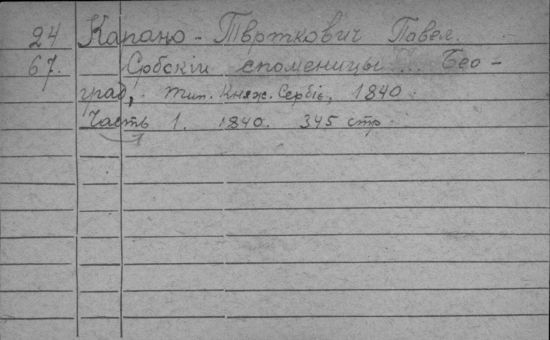 24 Карано-Твртковић Павел.
67. Србскіи споменицы ... Бео-
град, тип. Княж. Сербіе, 1840.
Часть 1. 1840. 345 стр.